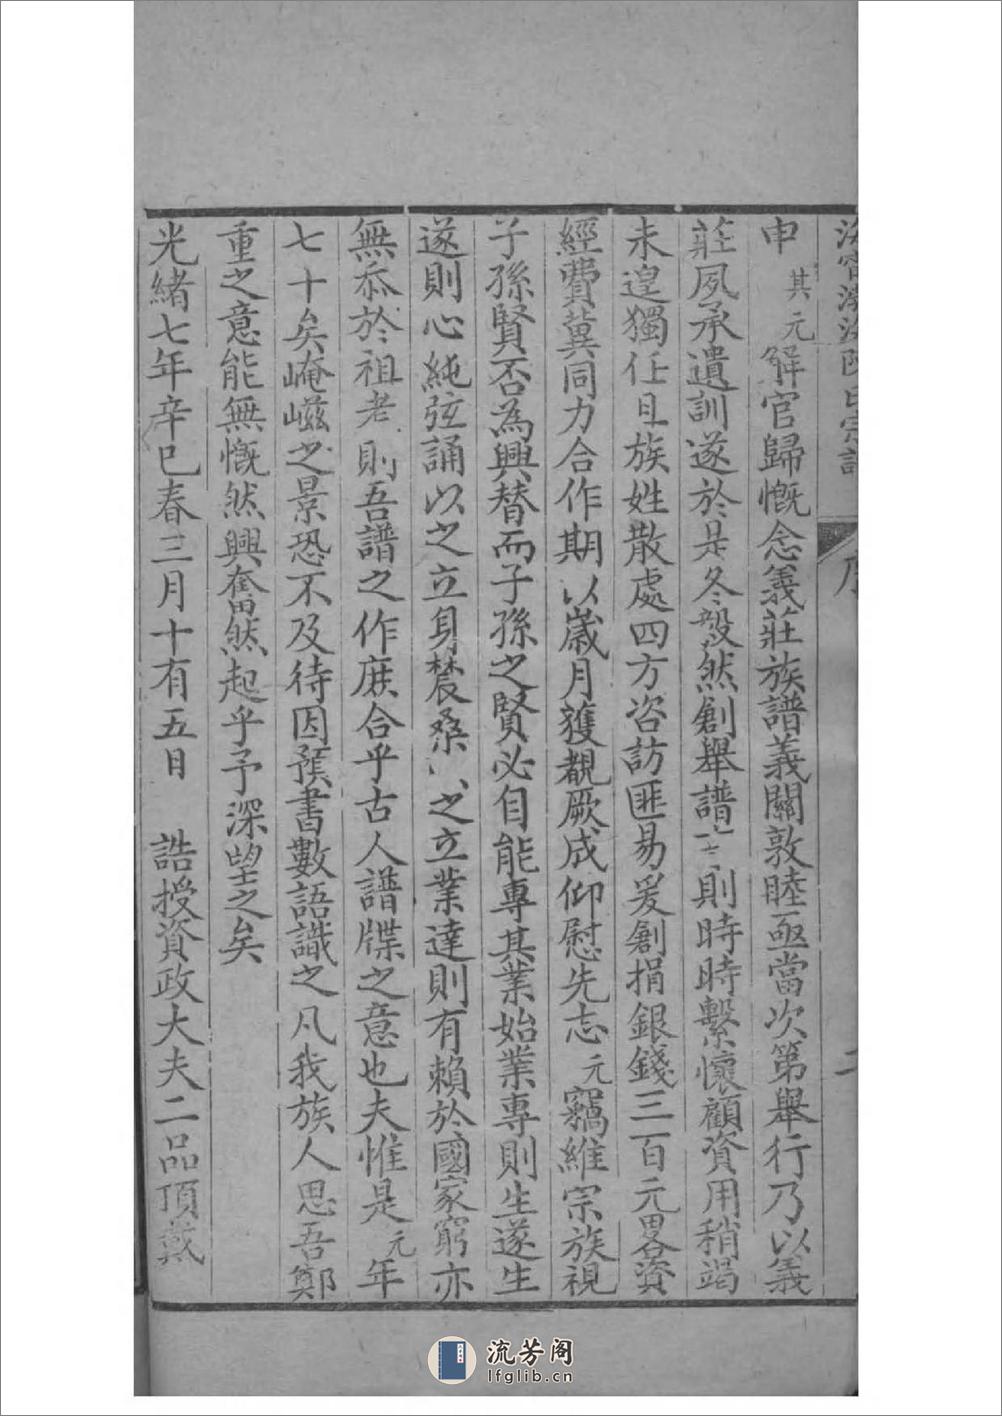 申其元解官歸慨念義莊族譜義關敦睦亟當次第舉行乃以義
莊夙承遺訓遂於是冬毅然創舉譜則時時繫懷顧資用稍竭
未遑獨任且族姓散處四方咨訪匪易爰創捐銀錢三百元畧資
經費冀同力合作期以歲月獲覩厥成仰慰先志元竊維宗族視
子孫賢否為興替而子孫之賢必自能專其業始業專則生遂生
遂則心純弦誦以之立身農桑以之立業達則有賴於國家窮亦
無忝於祖老則吾譜之作庶合乎古人譜牒之意也夫惟是元年
七十矣崦嵫之景恐不及待因預書數語識之凡我族人思吾鄭
重之意能無慨然興奮然起乎予深望之矣
光緒七年辛巳春三月十有五日 誥授資政大夫二品頂戴
流芳阁
lfglib.cn